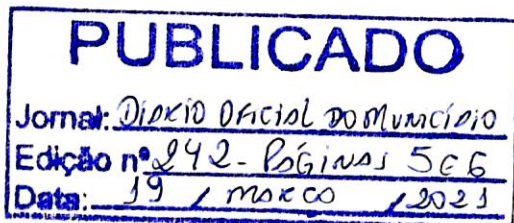 PUBLICADO
Jornal: DIÁRIO OFICIAL DO MUNICÍPIO
Edição nº 242 - PÁGINAS 5 E 6
Data: 19 / MARCO / 2021